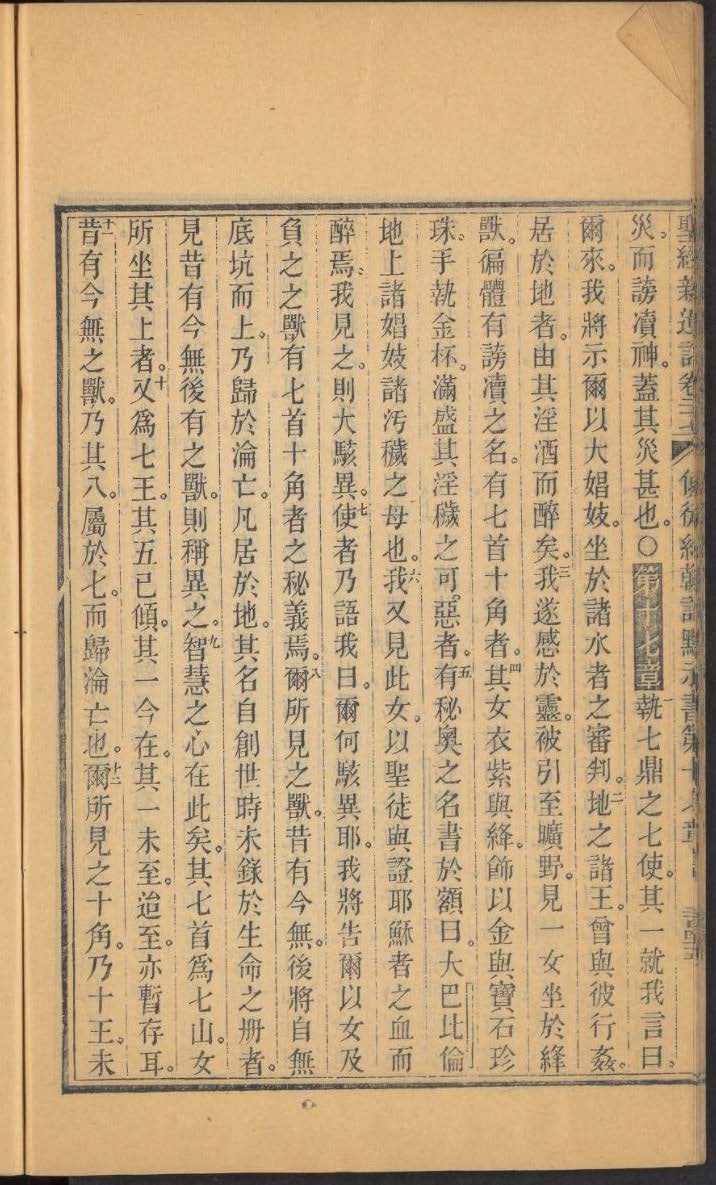 聖經新遺詔卷二十七 使徒約翰諭默示書第十七章
災。而謗凟神。蓋其災甚也。〇第十七章一執七鼎之七使。其一就我言曰。
爾來。我將示爾以大娼妓。坐於諸水者之審判。二地之諸王。曾與彼行姦。
居於地者。由其淫酒而醉矣。三我遂感於靈。被引至曠野。見一女坐於絳
獸。徧體有謗凟之名。有七首十角者。四其女衣紫與絳。飾以金與寶石珍
珠。手執金杯。滿盛其淫穢之可惡者。五有秘奧之名書於額曰。大巴比倫
地上諸娼妓諸汚穢之母也。六我又見此女。以聖徒與證耶穌者之血而
醉焉。我見之。則大駭異。七使者乃語我曰。爾何駭異耶。我將告爾以女及
負之之獸有七首十角者之秘義焉。八爾所見之獸。昔有今無。後將自無
底坑而上。乃歸於淪亡。凡居於地。其名自創世時未錄於生命之册者。
見昔有今無後有之獸。則稱異之。九智慧之心在此矣。其七首爲七山。女
所坐其上者。十又爲七王。其五已傾。其一今在。其一未至。迨至。亦暫存耳。
十一昔有今無之獸。乃其八。屬於七。而歸淪亡也。十二爾所見之十角。乃十王。未